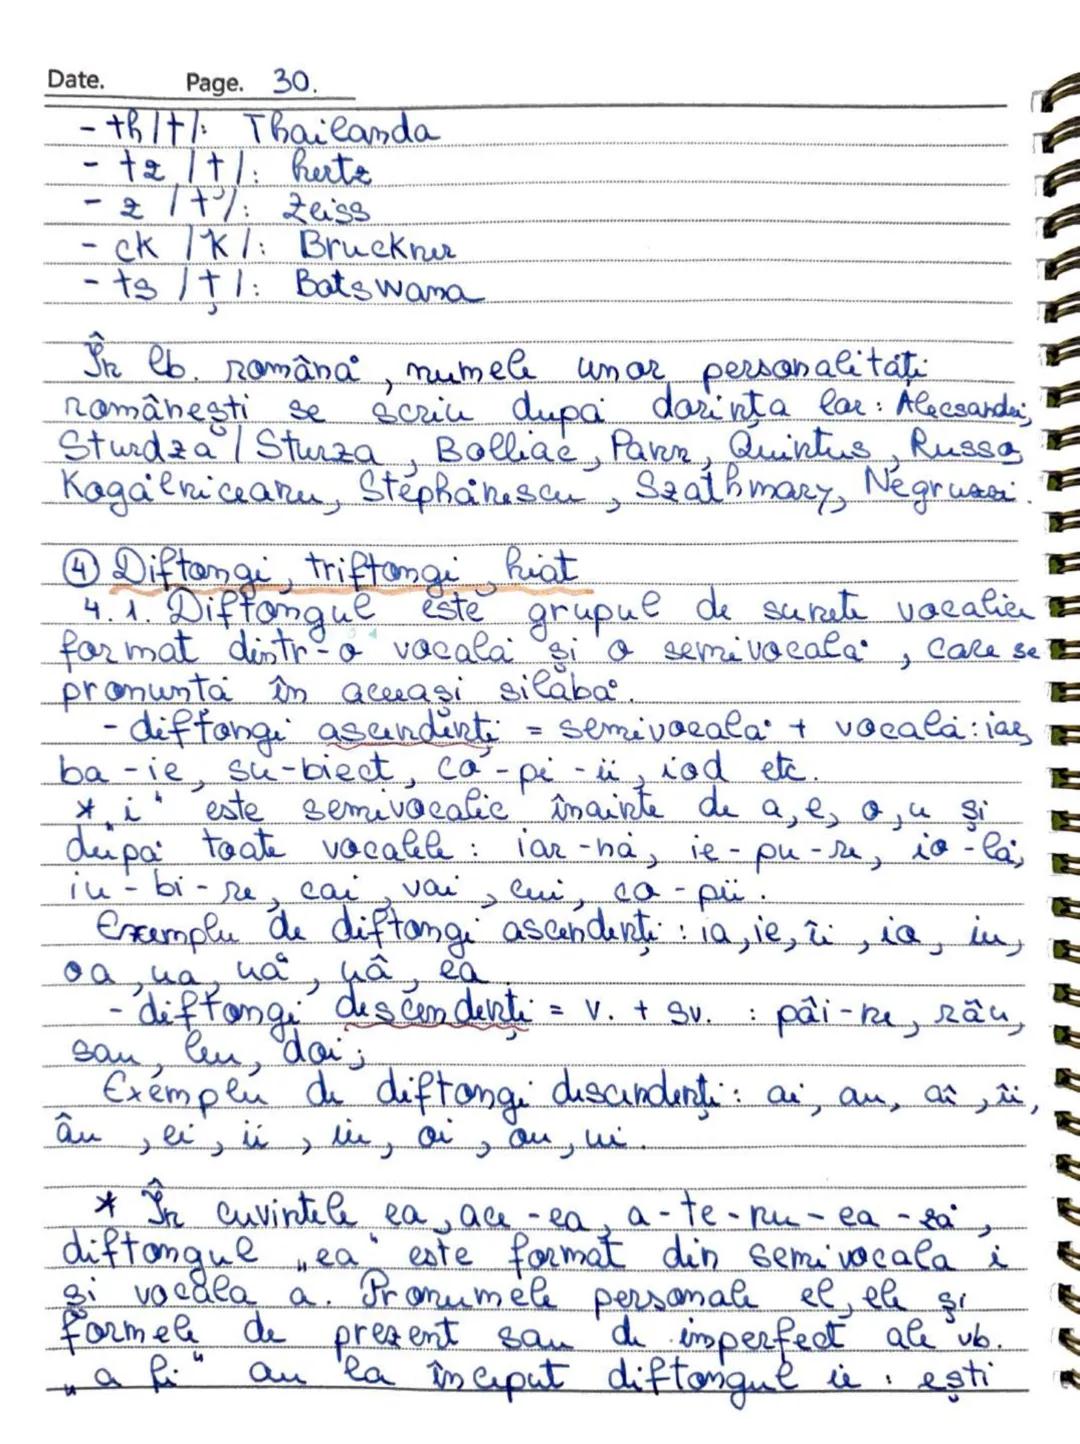 Date. Page. 30.
- th /t/: Thailanda
- tz /ț/: hertz
- z /ț/: Zeiss
- ck /k/: Bruckner
- ts /ț/: Botswana
În lb. română, numele unor personalități
românești se scriu după dorința lor: Alecsandri,
Sturdza / Sturza, Bolliac, Pann, Quintus, Russo,
Kogălniceanu, Stephănescu, Szathmary, Negruzzi.
④ Diftongi, triftongi, hiat
4.1. Diftongul este grupul de sunete vocalice
format dintr-o vocală și o semivocală, care se
pronunță în aceeași silabă.
- diftongi ascendenți = semivocală + vocală: iar,
ba-ie, su-biect, co-pi-ii, iod etc.
* „i" este semivocalic înainte de a, e, o, u și
după toate vocalele: iar-nă, ie-pu-re, io-lă,
iu-bi-re, cai, vai, cui, co-pii.
Exemplu de diftongi ascendenți: ia, ie, îi, io, iu,
oa, ua, uă, uâ, ea
- diftongi descendenți = v. + sv. : pâi-ne, râu,
sau, leu, doi;
Exemplu de diftongi descendenți: ai, au, ăi, îi,
âu, ei, ii, iu, oi, ou, ui.
* În cuvintele ea, ace-ea, a-te-nu-ea-ză,
diftongul „ea" este format din semivocala i
și vocala a. Pronumele personale el, ele și
formele de prezent sau de imperfect ale vb.
„a fi" au la început diftongul ie: ești